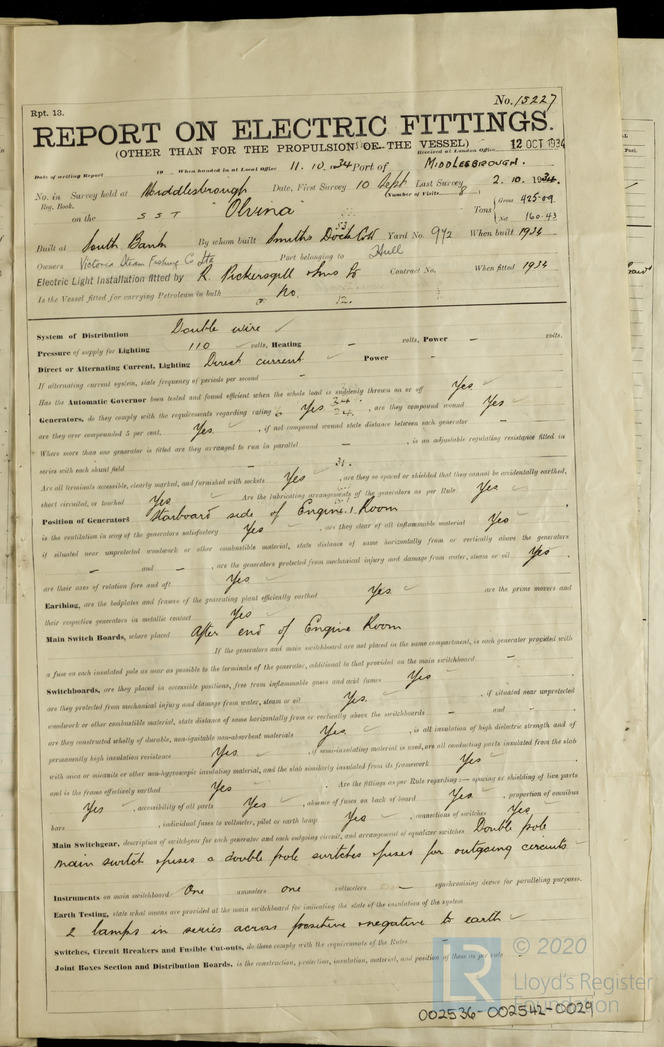 No. 15227
Rpt. 13.
REPORT ON ELECTRIC FITTINGS.
(OTHER THAN FOR THE PROPULSION OF THE VESSEL)
Received at London Office 12 OCT 1934
Date of writing Report 19 When handed in at Local Office 11. 10. 1934 Port of MIDDLESBROUGH.
No. in Survey held at Middlesbrough Date, First Survey 10 Sept Last Survey 2. 10. 1934.
Reg. Book. (Number of Visits
on the SST "Olvina" Tons { Gross 425.09
Net 160.43
Built at South Bank By whom built Smiths Dock Co Ld Yard No. 972 When built 1934
Owners Victoria Steam Fishing Co Ltd Port belonging to Hull
Electric Light Installation fitted by R. Pickersgill & Sons Ld Contract No. When fitted 1934
Is the Vessel fitted for carrying Petroleum in bulk No.
System of Distribution Double wire
Pressure of supply for Lighting 110 volts, Heating - volts, Power - volts.
Direct or Alternating Current, Lighting Direct current Power -
If alternating current system, state frequency of periods per second -
Has the Automatic Governor been tested and found efficient when the whole load is suddenly thrown on or off Yes
Generators, do they comply with the requirements regarding rating Yes, are they compound wound Yes
are they over compounded 5 per cent. Yes, if not compound wound state distance between each generator -
Where more than one generator is fitted are they arranged to run in parallel -, is an adjustable regulating resistance fitted in
series with each shunt field -
Are all terminals accessible, clearly marked, and furnished with sockets Yes, are they so spaced or shielded that they cannot be accidentally earthed,
short circuited, or touched Yes Are the lubricating arrangements of the generators as per Rule Yes
Position of Generators Starboard side of Engine Room
is the ventilation in way of the generators satisfactory Yes, are they clear of all inflammable material Yes
if situated near unprotected woodwork or other combustible material, state distance of same horizontally from or vertically above the generators
- and -, are the generators protected from mechanical injury and damage from water, steam or oil Yes.
are their axes of rotation fore and aft Yes
Earthing, are the bedplates and frames of the generating plant efficiently earthed Yes. are the prime movers and
their respective generators in metallic contact Yes
Main Switch Boards, where placed After end of Engine Room
If the generators and main switchboard are not placed in the same compartment, is each generator provided with
a fuse on each insulated pole as near as possible to the terminals of the generator, additional to that provided on the main switchboard -
Switchboards, are they placed in accessible positions, free from inflammable gases and acid fumes Yes
are they protected from mechanical injury and damage from water, steam or oil Yes., if situated near unprotected
woodwork or other combustible material, state distance of same horizontally from or vertically above the switchboards - and -
are they constructed wholly of durable, non-ignitable non-absorbent materials Yes., is all insulation of high dielectric strength and of
permanently high insulation resistance Yes, if semi-insulating material is used, are all conducting parts insulated from the slab
with mica or micanite or other non-hygroscopic insulating material, and the slab similarly insulated from its framework Yes
and is the frame effectively earthed Yes. Are the fittings as per Rule regarding:— spacing or shielding of live parts
Yes, accessibility of all parts Yes, absence of fuses on back of board Yes, proportion of omnibus
bars, individual fuses to voltmeter, pilot or earth lamp Yes, connections of switches Yes
Main Switchgear, description of switchgear for each generator and each outgoing circuit, and arrangement of equalizer switches Double pole
main switch & fuses & double pole switches & fuses for outgoing circuits
Instruments on main switchboard One ammeters one voltmeters - synchronising device for paralleling purposes.
Earth Testing, state what means are provided at the main switchboard for indicating the state of the insulation of the system
2 lamps in series across positive & negative to earth
Switches, Circuit Breakers and Fusible Cut-outs, do these comply with the requirements of the Rules
Joint Boxes Section and Distribution Boards, is the construction, protection, insulation, material, and position of these as per rule
LR © 2020
Lloyd's Register
Foundation
002536-002542-0029